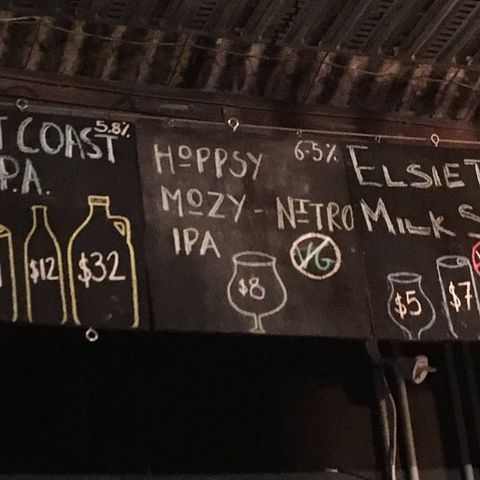 T COAST 5.8%
P.A.
$12
$32
HOPPSY 6.5%
MOZY - NITRO
IPA
VG
$8
ELSIE T
MILK S
$5
$7